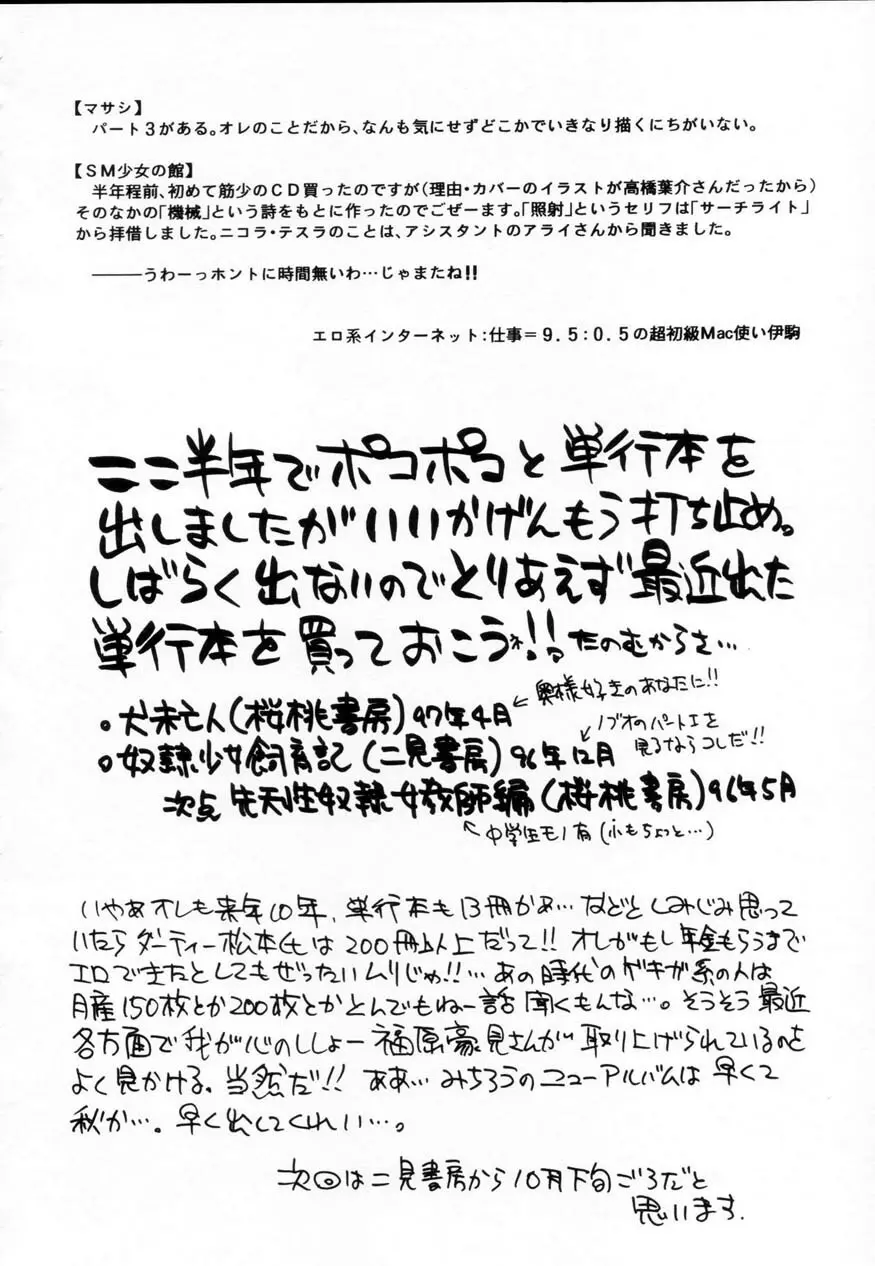 【マサシ】
パート3がある。オレのことだから、なんも気にせずどこかでいきなり描くにちがいない。
【SM少女の館】
半年程前、初めて筋少のCD買ったのですが(理由・カバーのイラストが高橋葉介さんだったから)
そのなかの「機械」という詩をもとに作ったのでごぜーます。「照射」というセリフは「サーチライト」
から拝借しました。ニコラ・テスラのことは、アシスタントのアライさんから聞きました。
———うわーっホントに時間無いわ…じゃまたね!!
エロ系インターネット:仕事=9.5:0.5の超初級Mac使い伊駒
ここ半年でポコポコと単行本を
出しましたがいいかげんもう打ち止め。
しばらく出ないのでとりあえず最近出た
単行本を買っておこうネ!!たのむからさ…
○犬未亡人(桜桃書房)97年4月←奥様好きのあなたに!!
○奴隷少女飼育記(二見書房)96年12月←ノブオのパート1を
見るならコレだ!!
次点 先天性奴隷女教師編(桜桃書房)96年5月
←中学生モノ有(小もちょっと…)
いやあオレも来年10年、単行本も13冊かぁ…などとしみじみ思って
いたらダーティー松本氏は200冊以上だって!!オレがもし年金もらうまで
エロで生きたとしてもぜったいムリじゃ!!…あの時代のゲキガ系の人は
月産150枚とか200枚とかとんでもねー話聞くもんな…。そうそう最近
各方面で我が心のししょー福原豪見さんが取り上げられているのを
よく見かける。当然だ!!ああ…みちろうのニューアルバムは早くて
秋か…。早く出してくれい…。
次回は二見書房から10月下旬ごろだと
思います.